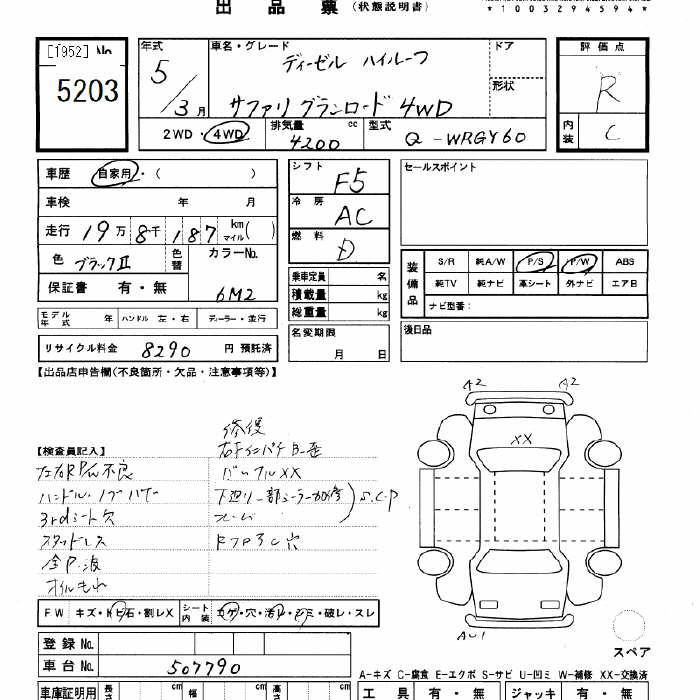 出品票 (状態説明書)
*1003294594*
[1952] No.
5203
年式
5/3月
車名・グレード
ディーゼル ハイルーフ
サファリ グランロード 4WD
ドア
形状
評価点
R
内装 C
2WD・4WD
排気量 4200 cc
型式 Q-WRGY60
車歴 自家用・( )
車検 年 月
走行 19万8千187 km マイル( )
色 ブラックⅡ 色替
カラーNo. 6M2
保証書 有・無
シフト F5
冷房 AC
燃料 D
乗車定員 名
積載量 kg
総重量 kg
名変期限 月 日
セールスポイント
装備品
S/R 純A/W P/S P/W ABS
純TV 純ナビ 革シート 外ナビ エアB
ナビ型番:
後日品
モデル年式 年 ハンドル 左・右 ディーラー・並行
リサイクル料金 8290 円 預託済
【出品店申告欄(不良箇所・欠品・注意事項等)】
A2 A2
XX
【検査員記入】
修復
バックフルXX
ハンドル・ノブ
3rdシート欠
スタッドレス
フレーム
S.C.P
全P.波
オイルもれ
FW キズ・トビ石・割レX
シート内装 コゲ・穴・汚レ・シミ・破レ・スレ
登録No.
車台No. 507790
AU1
スペア
A-キズ C-腐食 E-エクボ S-サビ U-凹ミ W-補修 XX-交換済
車庫証明用 長さ cm 幅 cm 高さ cm
工具 有・無 ジャッキ 有・無